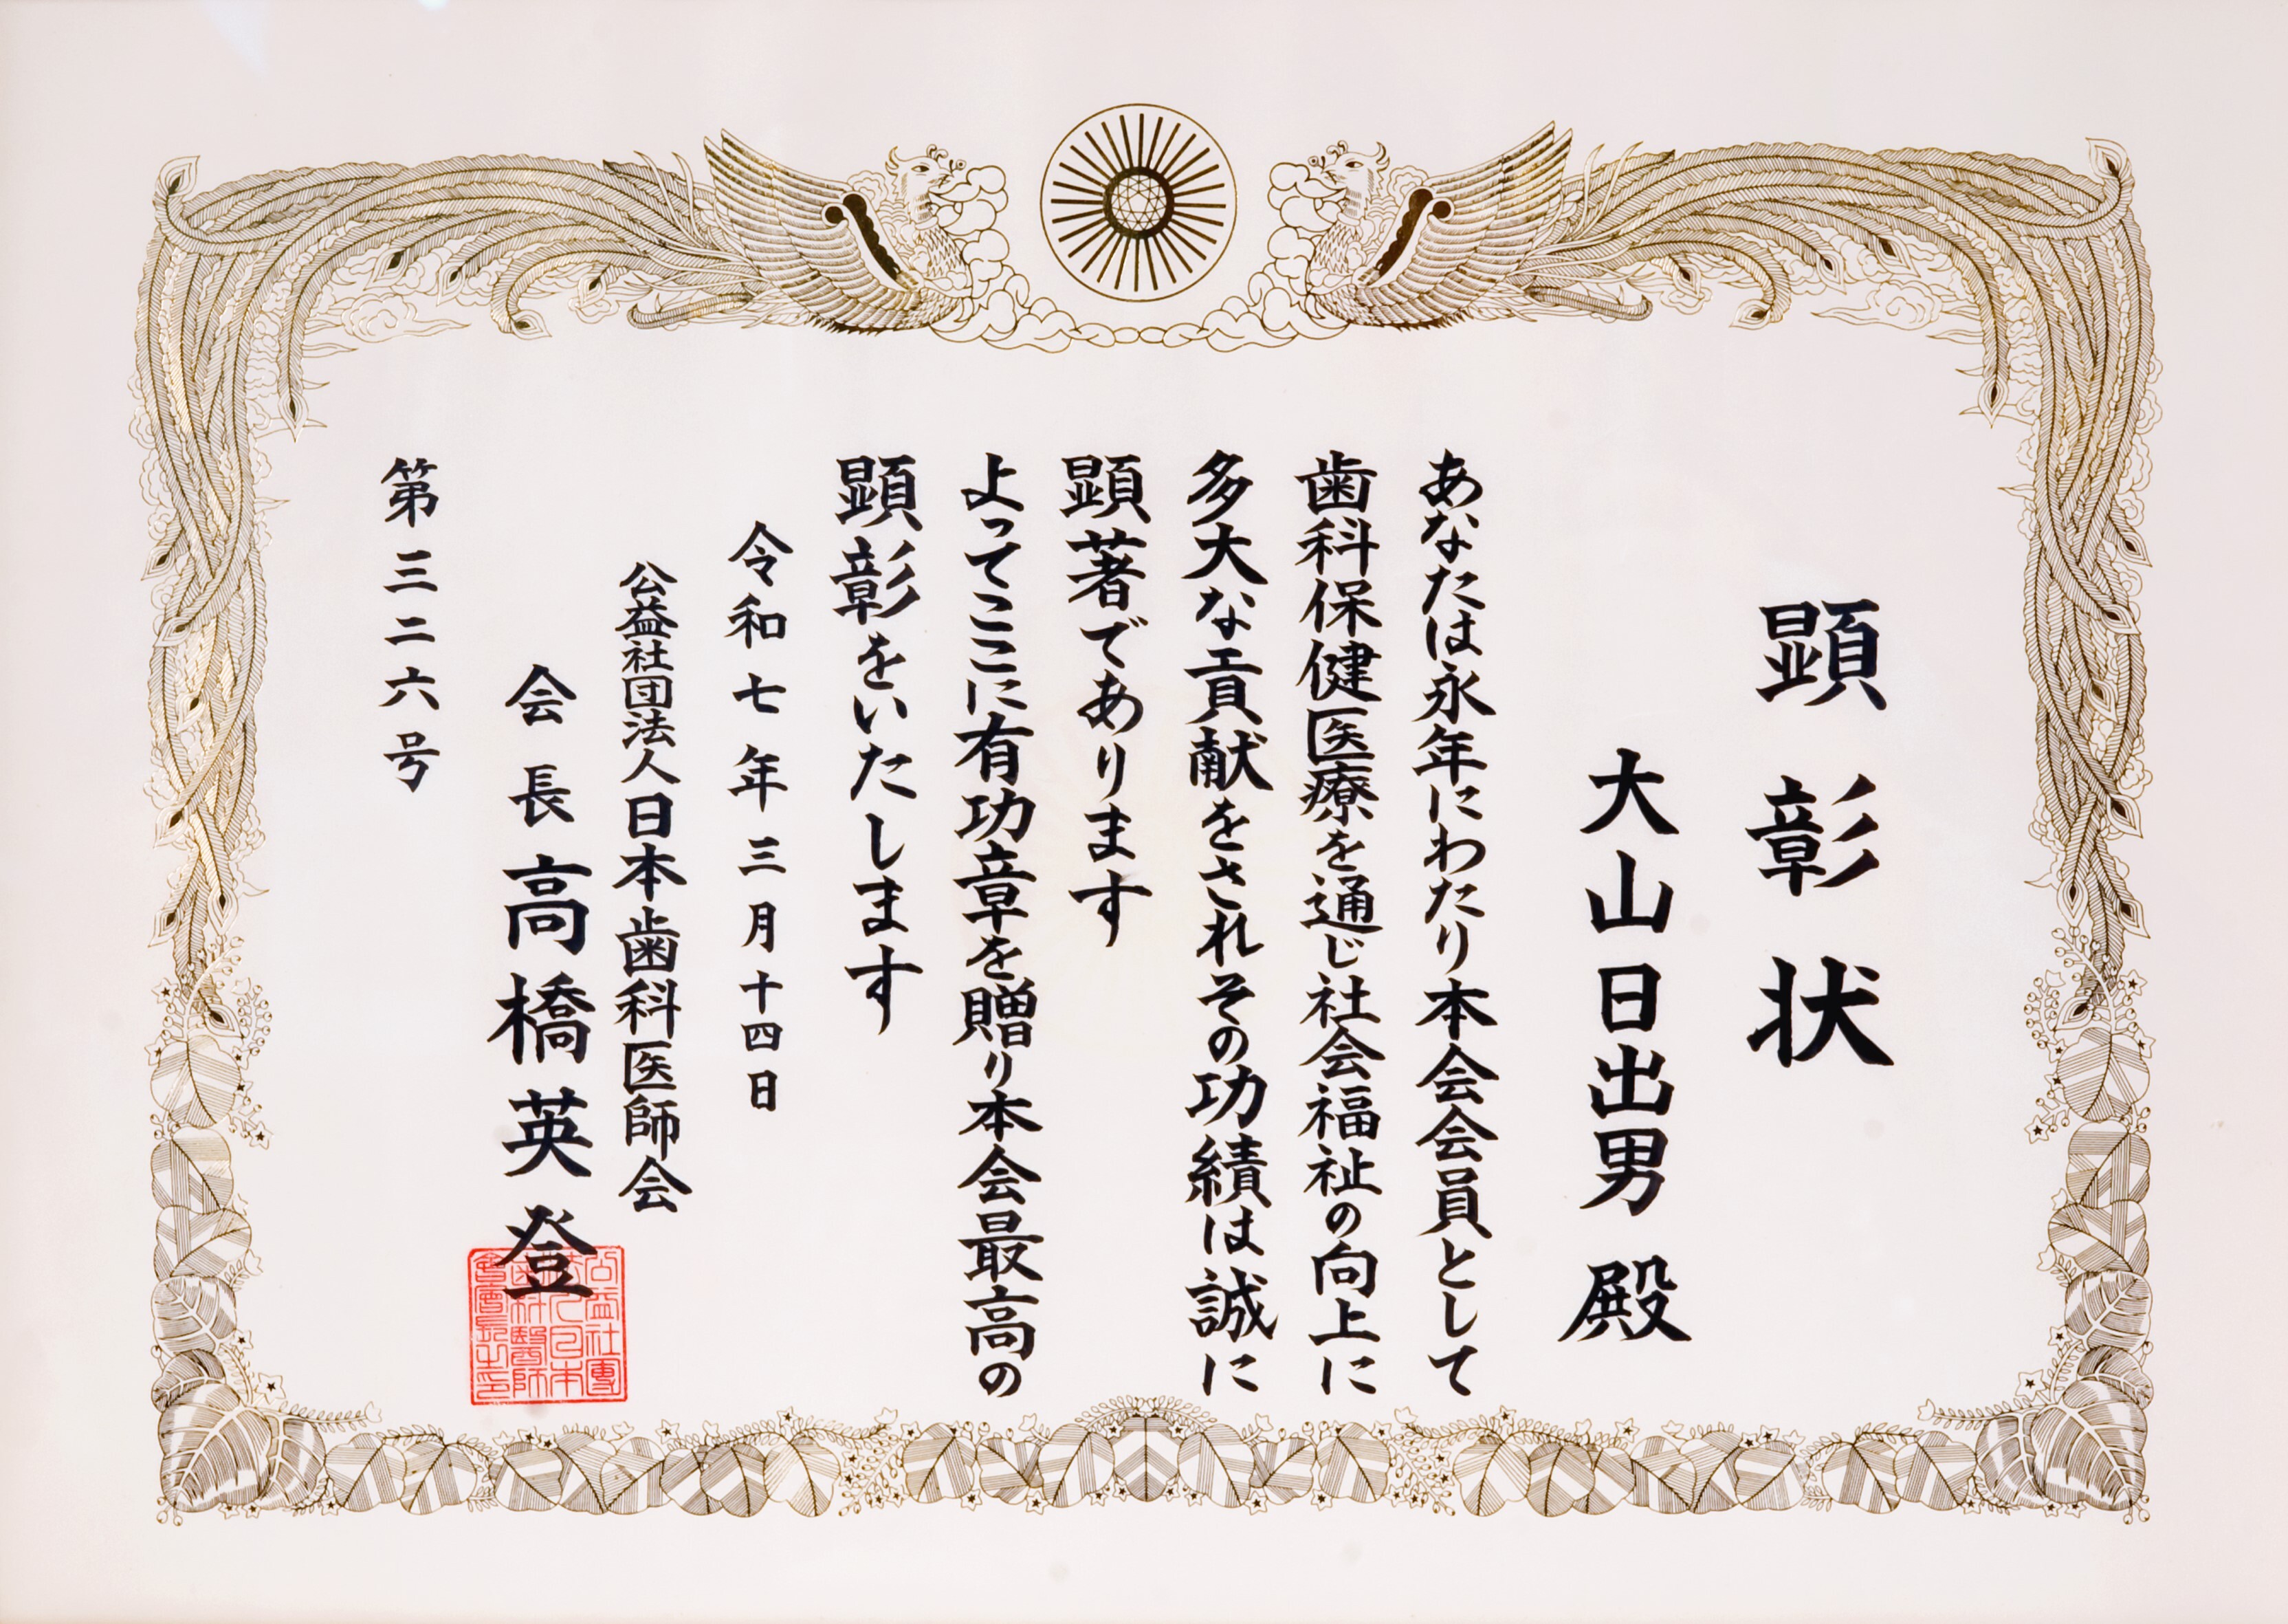 顕彰状
大山日出男 殿
あなたは永年にわたり本会会員として
歯科保健医療を通じ社会福祉の向上に
多大な貢献をされその功績は誠に
顕著であります
よってここに有功章を贈り本会最高の
顕彰をいたします
令和七年三月十四日
公益社団法人日本歯科医師会
会長 高橋英登
公益社團
法人日本
歯科醫師
會會長之印
第三二六号